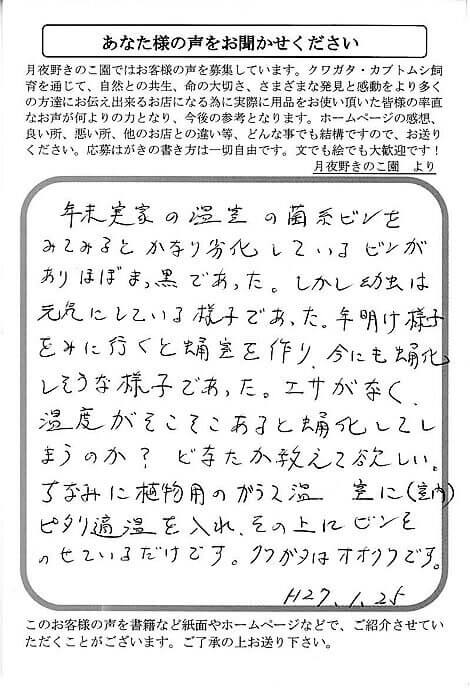 あなた様の声をお聞かせください
月夜野きのこ園ではお客様の声を募集しています。クワガタ・カブトムシ飼
育を通じて、自然との共生、命の大切さ、さまざまな発見と感動をより多く
の方達にお伝え出来るお店になる為に実際に用品をお使い頂いた皆様の率直
なお声が何よりの力となり、今後の参考となります。ホームページの感想、
良い所、悪い所、他のお店との違い等、どんな事でも結構ですので、お送り
ください。応募はがきの書き方は一切自由です。文でも絵でも大歓迎です！
月夜野きのこ園　より
年末実家の温室の菌糸ビンを
みてみるとかなり劣化しているビンが
ありほぼまっ黒であった。しかし幼虫は
元気にしている様子であった。年明け様子
をみに行くと蛹室を作り、今にも蛹化
しそうな様子であった。エサがなく、
温度がそこそこあると蛹化してし
まうのか？ どなたか教えて欲しい。
ちなみに植物用のガラス温　室に(室内)
ピタリ適温を入れ、その上にビンを
のせているだけです。クワガタはオオクワです。
H27.1.25
このお客様の声を書籍など紙面やホームページなどで、ご紹介させてい
ただくことがございます。ご了承の上お送り下さい。